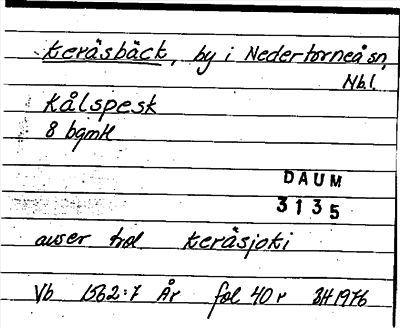 Keräsbäck, by i Nedertorneå sn,
Nb.l.
Kålspesk
8 bqmH
DAUM
3135
avser trol Keräsjoki
Vb 1562:7 År fol 40 r SH 1976